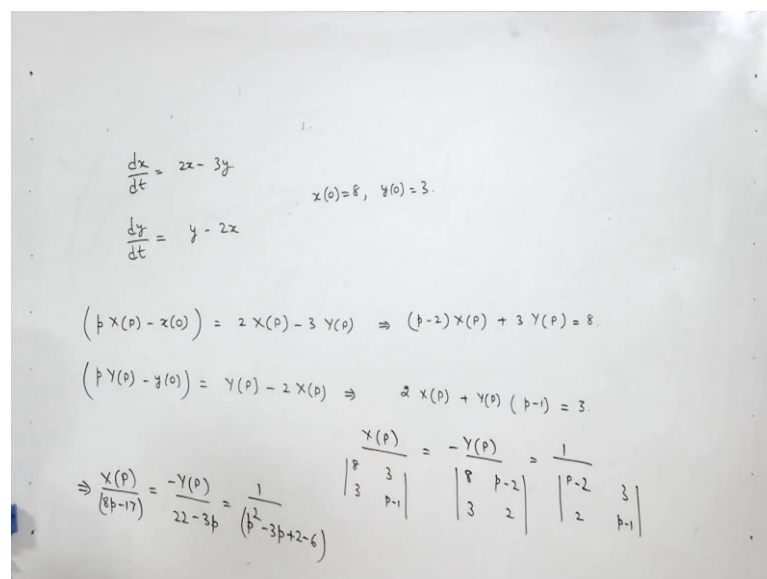 dx/dt = 2x - 3y
x(0)=8, y(0)=3.
dy/dt = y - 2x
(p X(p) - x(0)) = 2 X(p) - 3 Y(p) ⇒ (p-2) X(p) + 3 Y(p) = 8.
(p Y(p) - y(0)) = Y(p) - 2 X(p) ⇒ 2 X(p) + Y(p) (p-1) = 3.
X(p)/|8 3; 3 p-1| = -Y(p)/|8 p-2; 3 2| = 1/|p-2 3; 2 p-1|
⇒ X(p)/(8p-17) = -Y(p)/(22-3p) = 1/(p²-3p+2-6)